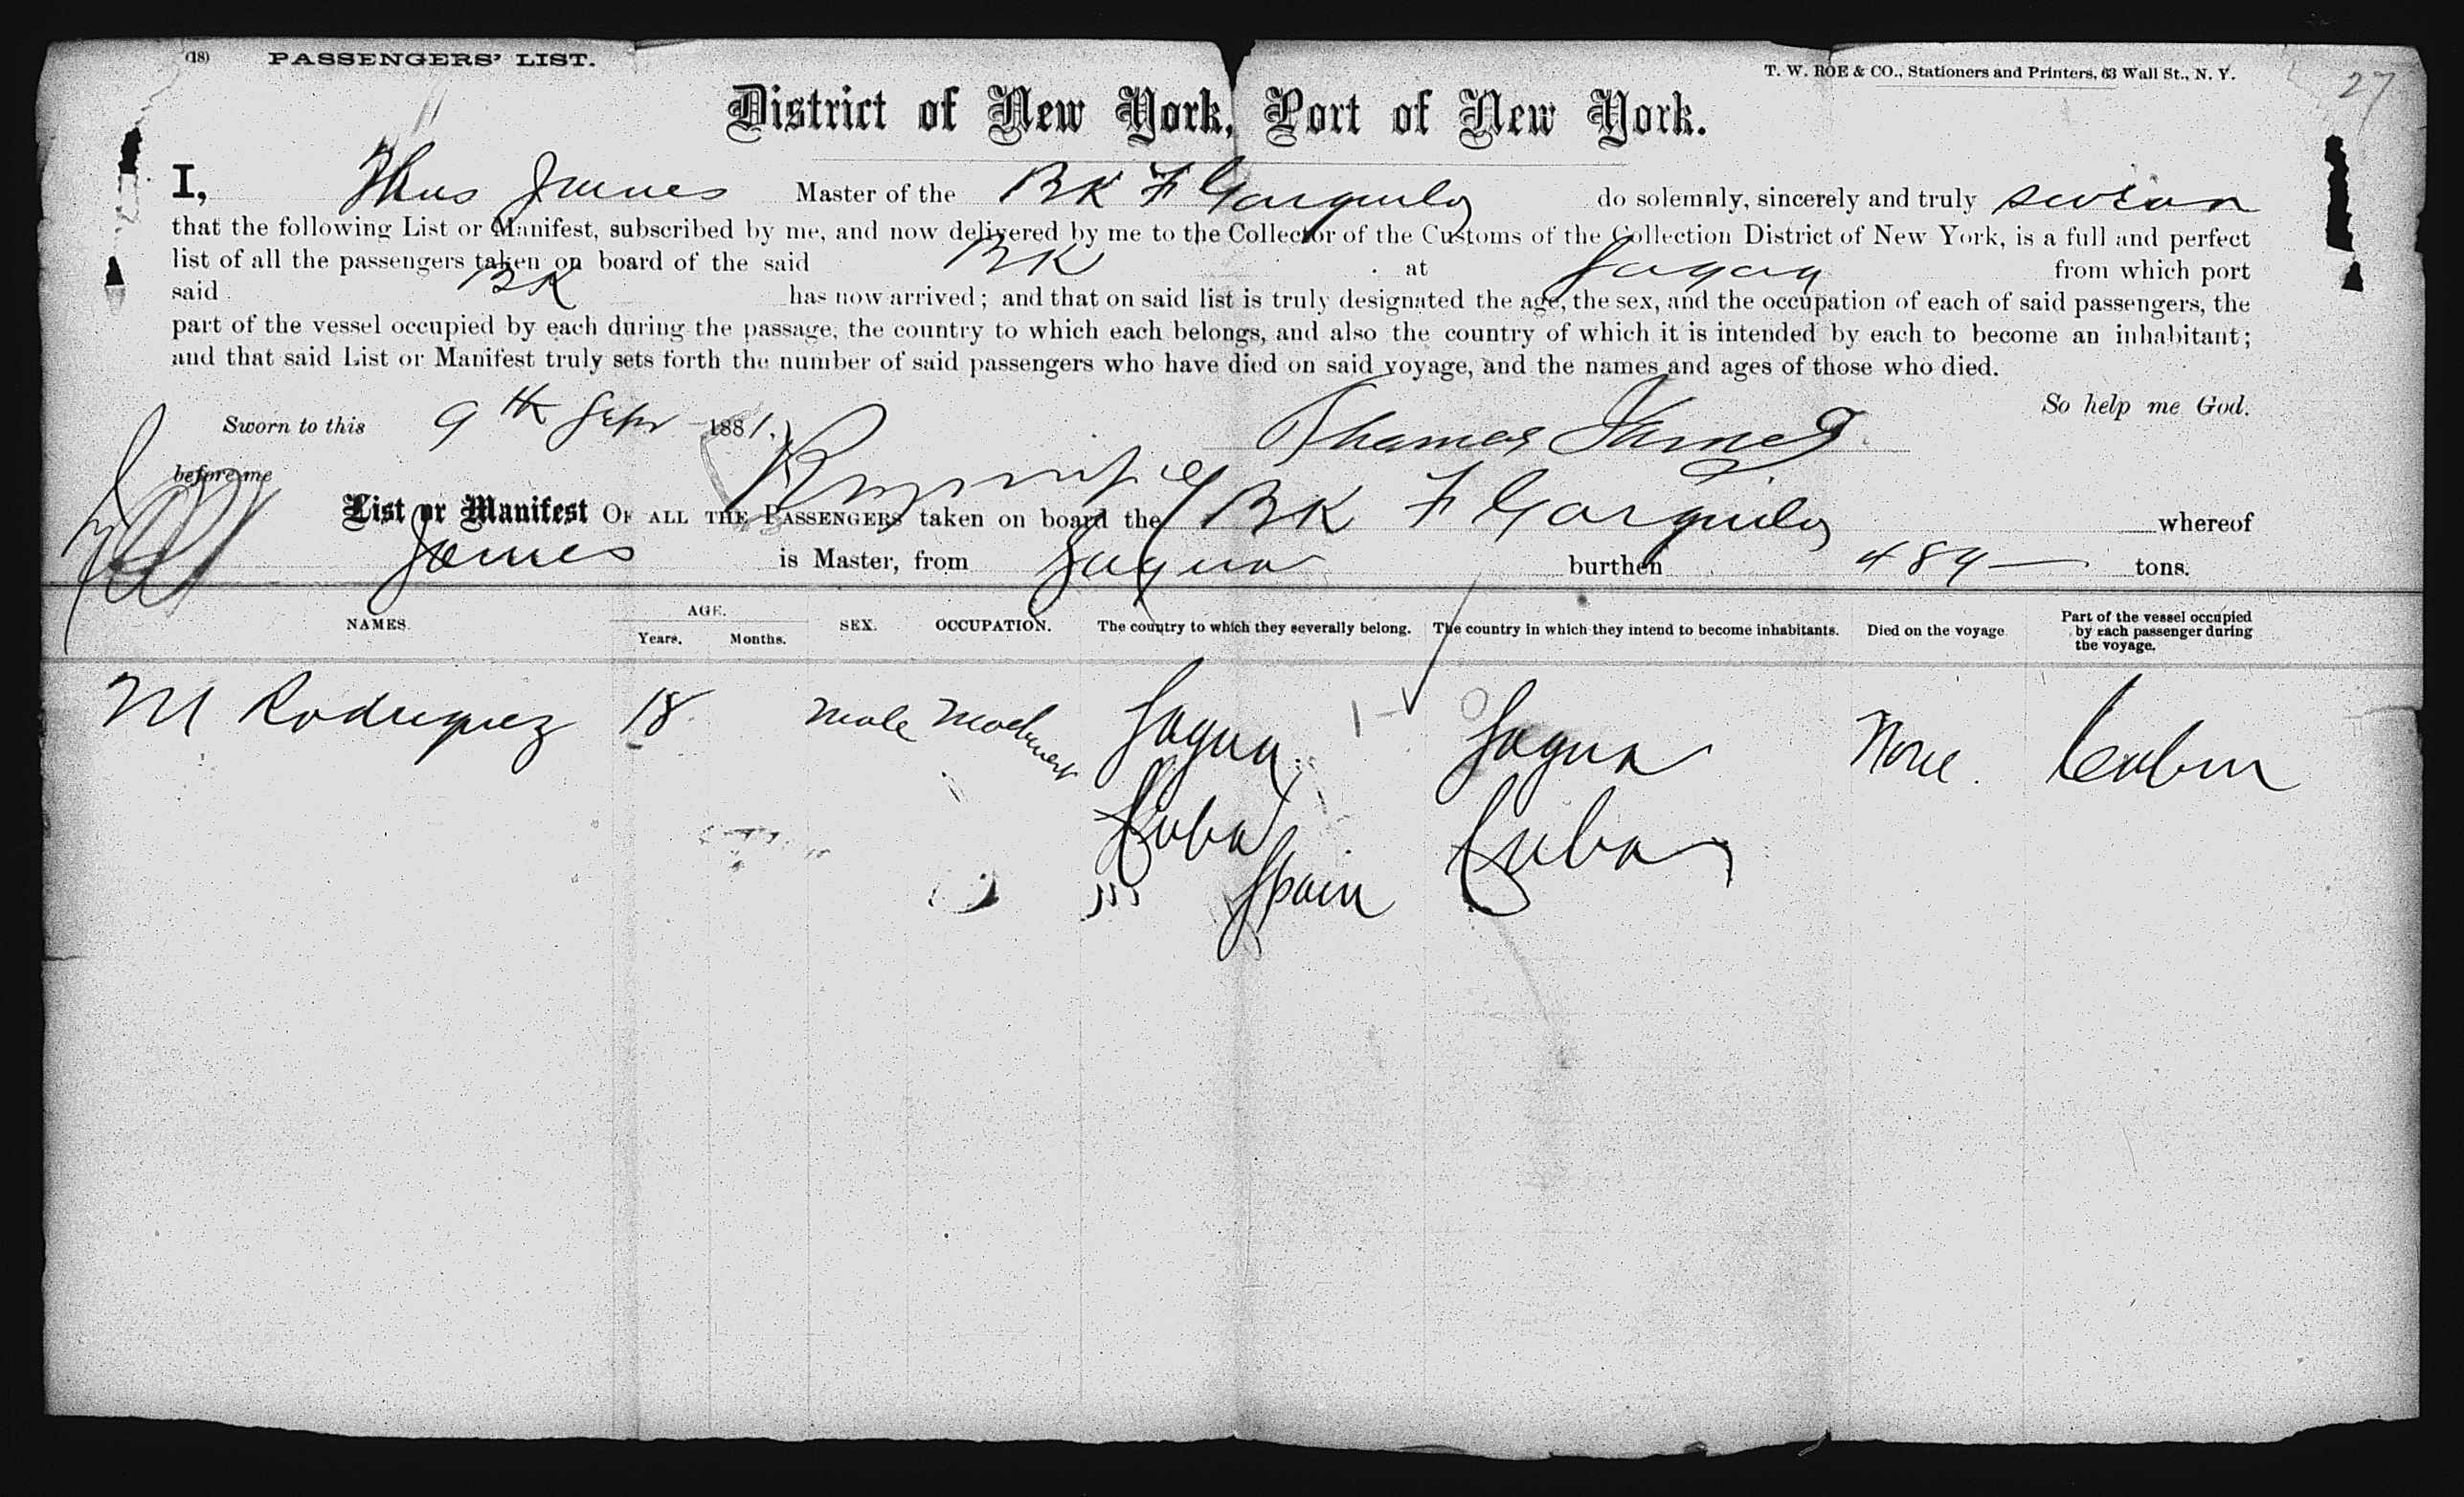 (18) PASSENGERS' LIST.
T. W. ROE & CO., Stationers and Printers, 63 Wall St., N. Y.
27
District of New York, Port of New York.
I, Thos James Master of the BK F Garguily do solemnly, sincerely and truly swear
that the following List or Manifest, subscribed by me, and now delivered by me to the Collector of the Customs of the Collection District of New York, is a full and perfect
list of all the passengers taken on board of the said BK at from which port
said BK has now arrived; and that on said list is truly designated the age, the sex, and the occupation of each of said passengers, the
part of the vessel occupied by each during the passage, the country to which each belongs, and also the country of which it is intended by each to become an inhabitant;
and that said List or Manifest truly sets forth the number of said passengers who have died on said voyage, and the names and ages of those who died.
So help me God.
Sworn to this 9th Sepr 1881.
Thomas James
before me
List or Manifest OF ALL THE PASSENGERS taken on board the BK F Garguily whereof
James is Master, from Sagua burthen 489 tons.
NAMES. AGE. Years. Months. SEX. OCCUPATION. The country to which they severally belong. The country in which they intend to become inhabitants. Died on the voyage. Part of the vessel occupied by each passenger during the voyage.
M Rodriguez 18 male Sagua Sagua None. Cabin
Cuba Cuba
Spain